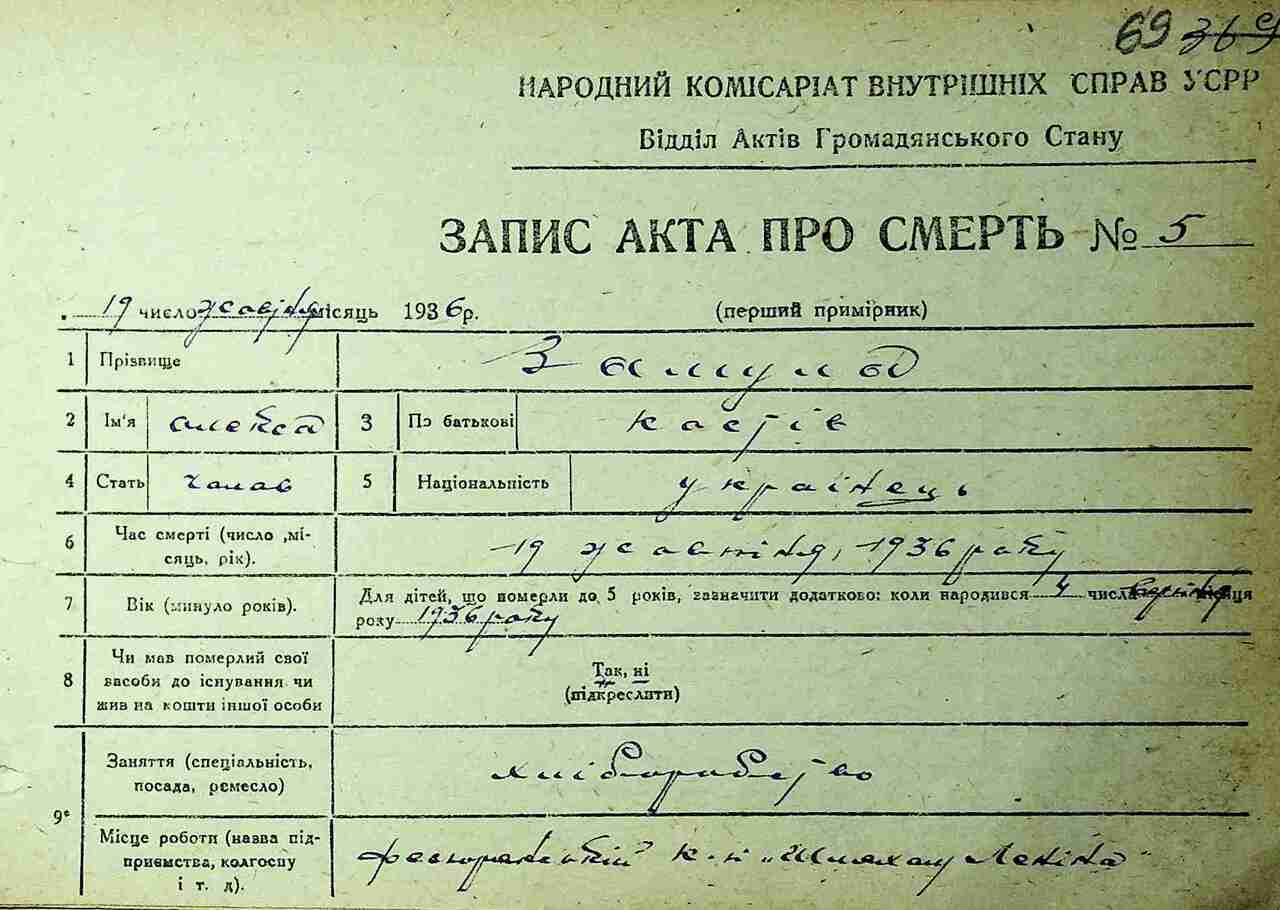 69 369
НАРОДНИЙ КОМІСАРІАТ ВНУТРІШНІХ СПРАВ УСРР
Відділ Актів Громадянського Стану
ЗАПИС АКТА ПРО СМЕРТЬ № 5
19 число жовтня місяць 1936 р. (перший примірник)
1 Прізвище Замула
2 Ім'я Олекса 3 По батькові Костів
4 Стать чолов 5 Національність українець
6 Час смерті (число, мі-
сяць, рік). 19 жовтня, 1936 року
7 Вік (минуло років). Для дітей, що померли до 5 років, зазначити додатково: коли народився 4 числа місяця
року 1936 року
8 Чи мав померлий свої
засоби до існування чи
жив на кошти іншої особи
Так, ні
(підкреслити)
9 Заняття (спеціальність,
посада, ремесло) хліборобство
Місце роботи (назва під-
приємства, колгоспу
і т. д). к-п „Шляхом Леніна"